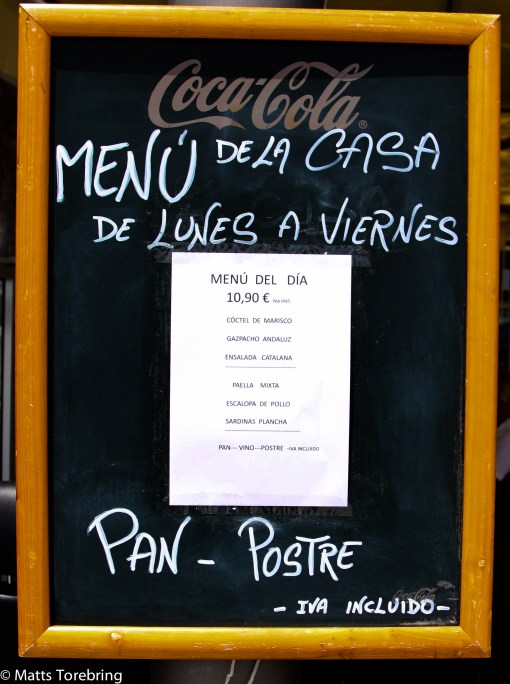 Coca-Cola®
MENÚ DE LA CASA
DE LUNES A VIERNES
MENÚ DEL DÍA
10,90 € iva incl.
CÓCTEL DE MARISCO
GAZPACHO ANDALUZ
ENSALADA CATALANA
PAELLA MIXTA
ESCALOPA DE POLLO
SARDINAS PLANCHA
PAN--- VINO---POSTRE -IVA INCLUIDO
PAN - POSTRE
Coca-Cola
- IVA INCLUIDO -
© Matts Torebring